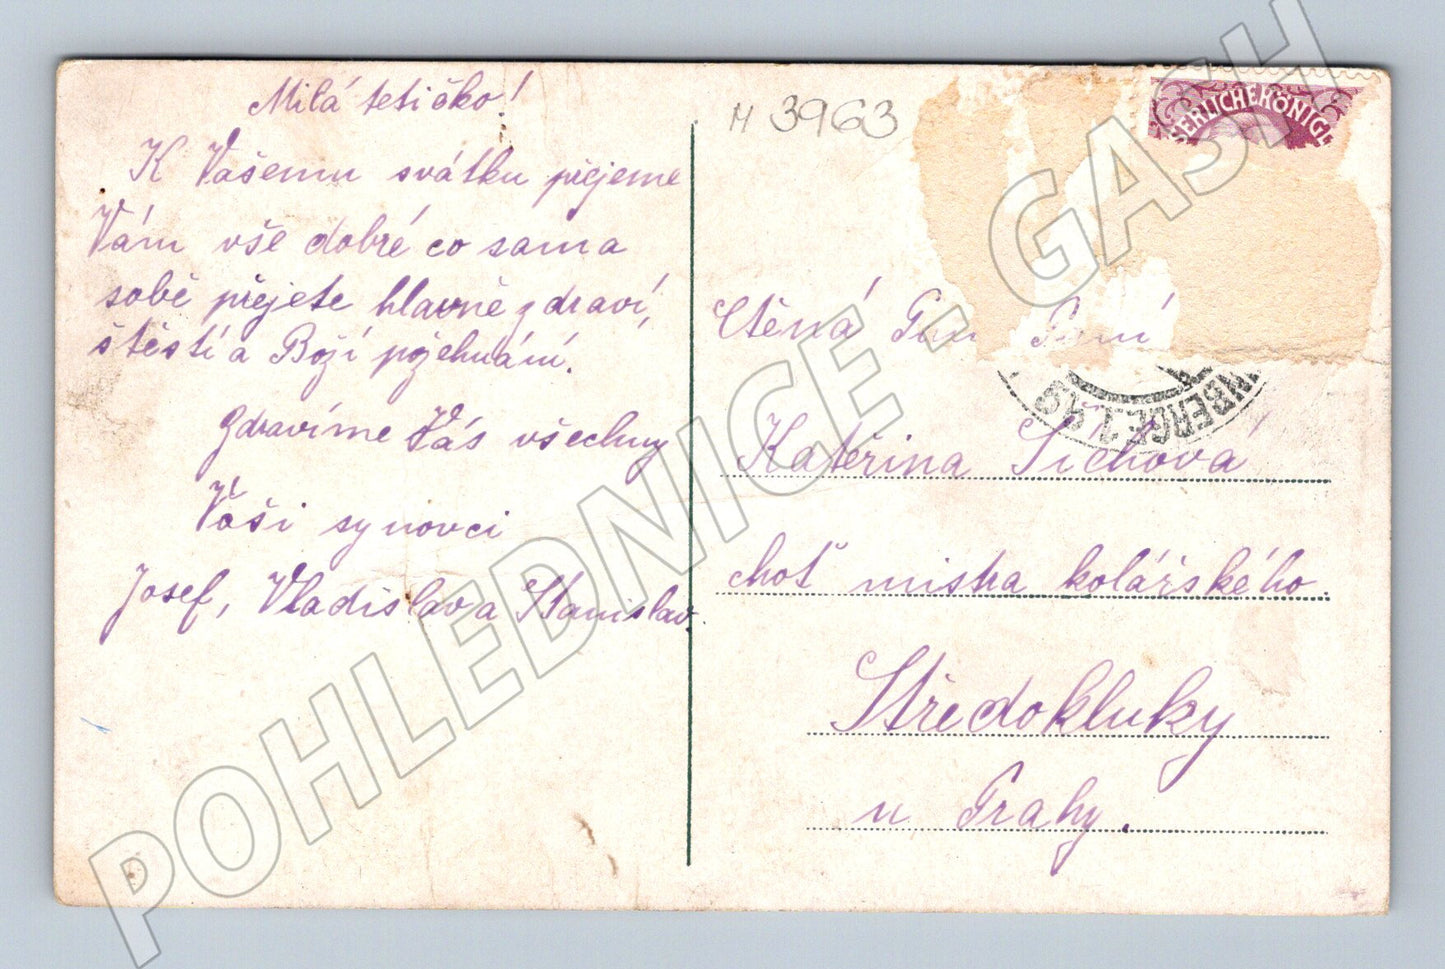 Milá tetičko!
K Vašemu svátku přejeme
Vám vše dobré co sama
sobě přejete hlavně zdraví,
štěstí a Boží požehnání.
Zdravíme Vás všechny
Vaši synovci
Josef, Vladislav a Stanislav.
M 3963
SERLICHEKÖNIGL
Ctěná Paní
Kateřina Šichová
choť mistra kolářského.
Středokluky
u Prahy.
POHLEDNICE - GASH